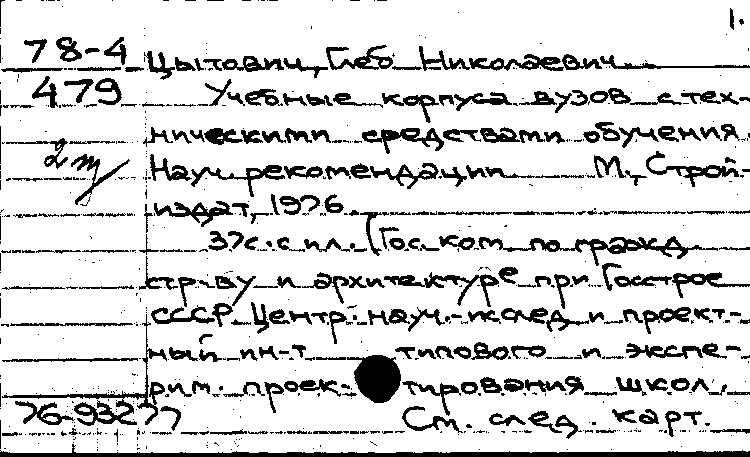 1.
78-4 Цытович, Глеб Николаевич.
479 Учебные корпуса вузов с тех-
ническими средствами обучения
2 т Науч. рекомендации. М., Строй-
издат, 1976.
37с. с ил. (Гос. ком. по гражд.
стр-ву и архитектуре при Госстрое
СССР. Центр. науч.-исслед. и проект-
ный ин-т типового и экспе-
рим. проек- тирования школ,
76-93277 См. след. карт.